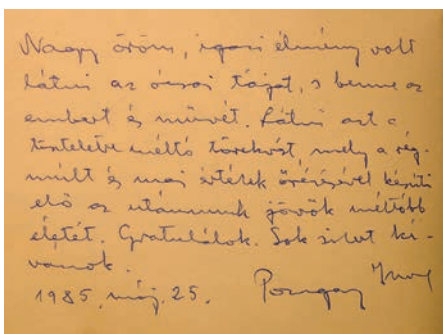 Nagy öröm, igazi élmény volt
látni az ócsai tájat, s benne az
embert és művét. Látni azt a
tiszteletre méltó törekvést, mely a rég-
múlt és mai értékek őrzésével készíti
elő az utánunk jövők méltóbb
életét. Gratulálok. Sok sikert kí-
vánok.
1985. máj. 25. Pozsgay Imre